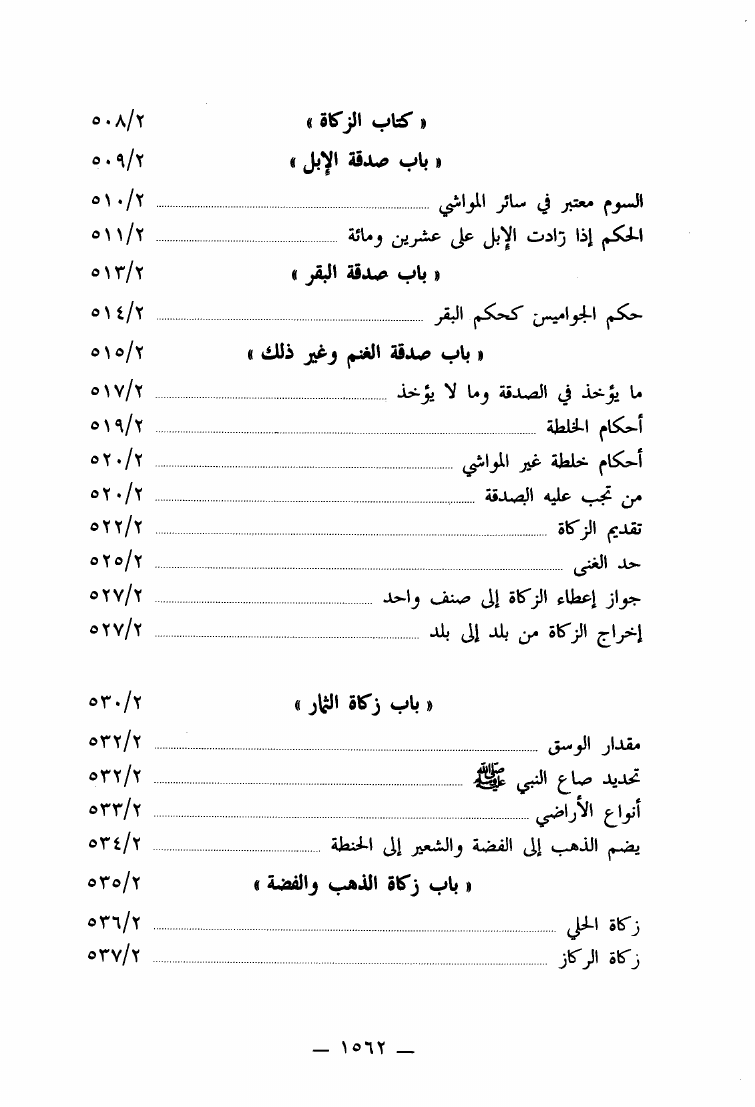 « كتاب الزكاة » ٥٠٨/٢
« باب صدقة الإبل » ٥٠٩/٢
السوم معتبر في سائر المواشي ٥١٠/٢
الحكم إذا زادت الإبل على عشرين ومائة ٥١١/٢
« باب صدقة البقر » ٥١٣/٢
حكم الجواميس كحكم البقر ٥١٤/٢
« باب صدقة الغنم وغير ذلك » ٥١٥/٢
ما يؤخذ في الصدقة وما لا يؤخذ ٥١٧/٢
أحكام الخلطة ٥١٩/٢
أحكام خلطة غير المواشي ٥٢٠/٢
من تجب عليه الصدقة ٥٢٠/٢
تقديم الزكاة ٥٢٢/٢
حد الغنى ٥٢٥/٢
جواز إعطاء الزكاة إلى صنف واحد ٥٢٧/٢
إخراج الزكاة من بلد إلى بلد ٥٢٧/٢
« باب زكاة الثمار » ٥٣٠/٢
مقدار الوسق ٥٣٢/٢
تحديد صاع النبي ﷺ ٥٣٢/٢
أنواع الأراضي ٥٣٣/٢
يضم الذهب إلى الفضة والشعير إلى الحنطة ٥٣٤/٢
« باب زكاة الذهب والفضة » ٥٣٥/٢
زكاة الحلي ٥٣٦/٢
زكاة الركاز ٥٣٧/٢
— ١٥٦٢ —